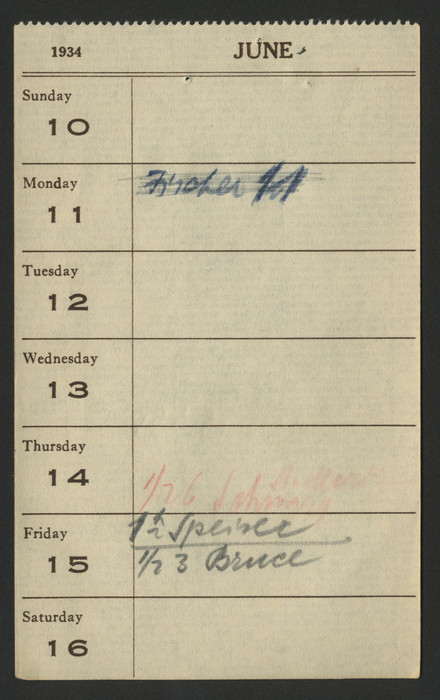 1934 JUNE
Sunday
10
Monday
11
Fischer
Tuesday
12
Wednesday
13
Thursday
14
1/2 6
Friday
15
1h Speiser
1/2 3 Bruce
Saturday
16